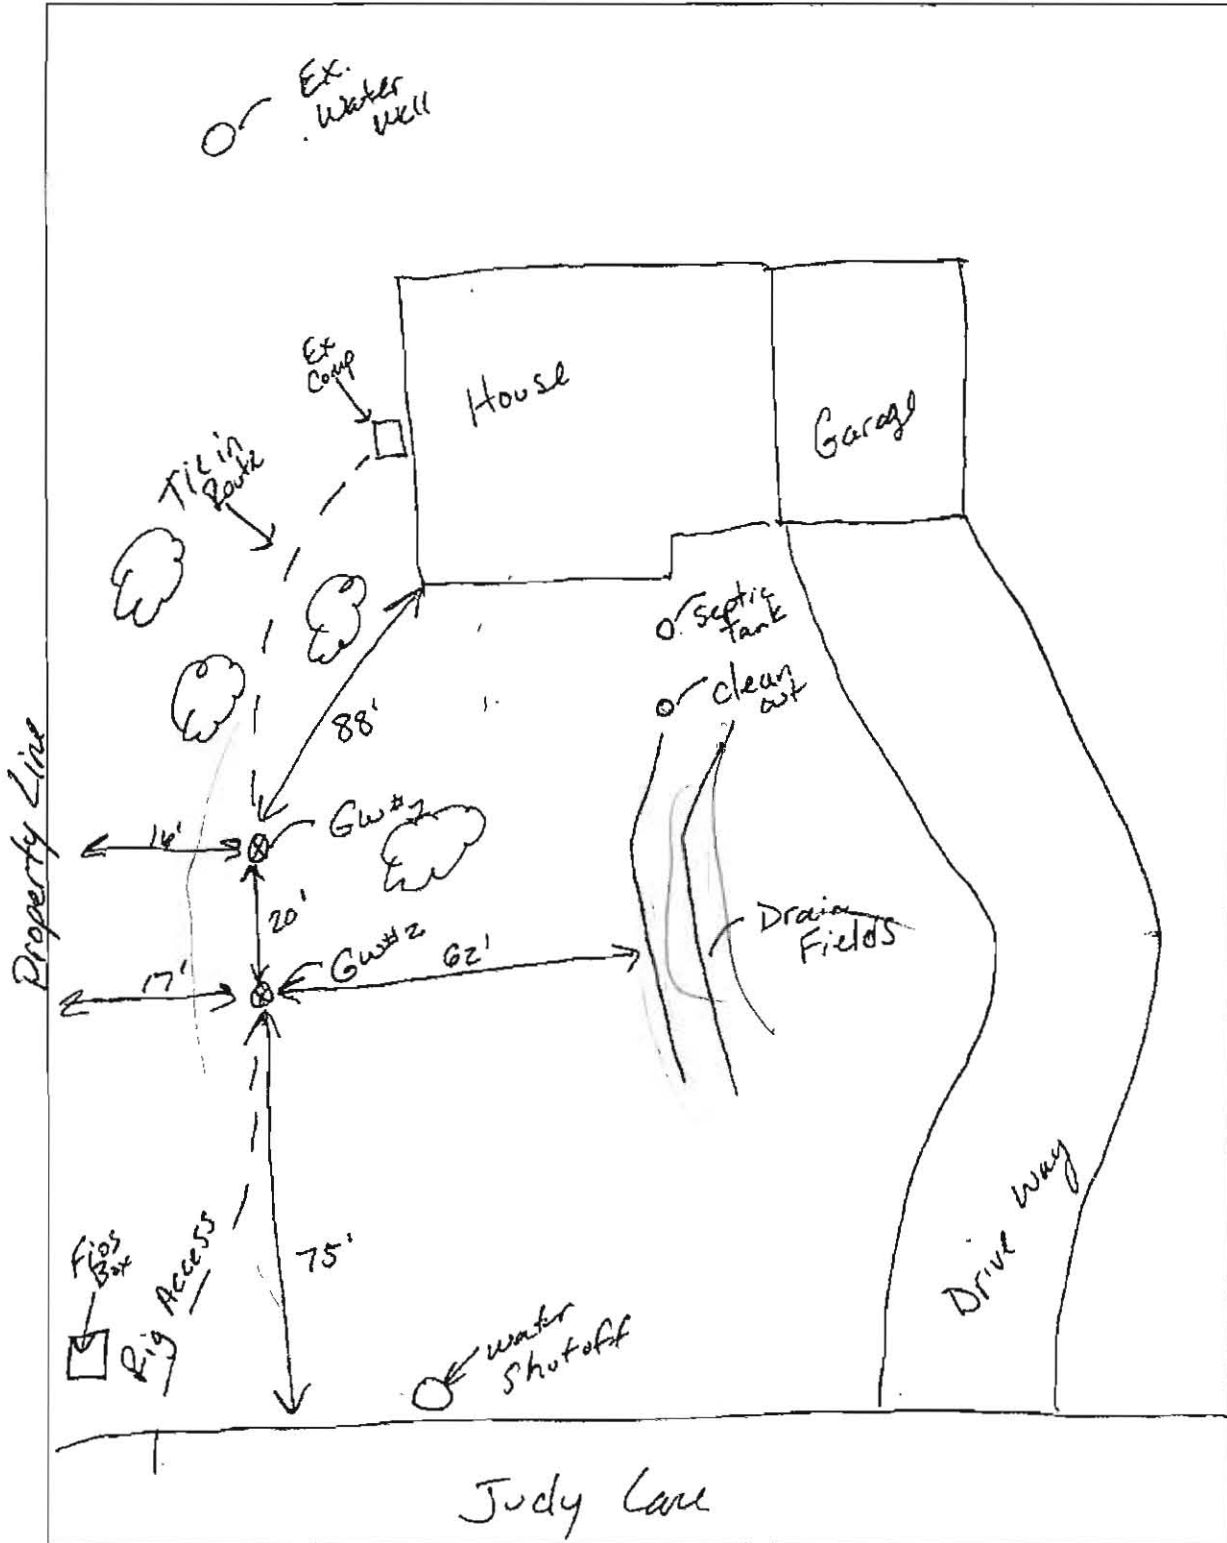 Ex.
Water
Well
Ex
Comp
House
Garage
Tie in
Route
Septic
tank
clean
out
88'
Property Line
16'
GW#1
20'
GW#2
62'
17'
Drain
Fields
75'
Fios
Box
Rig Access
Water
Shutoff
Drive Way
Judy Lane